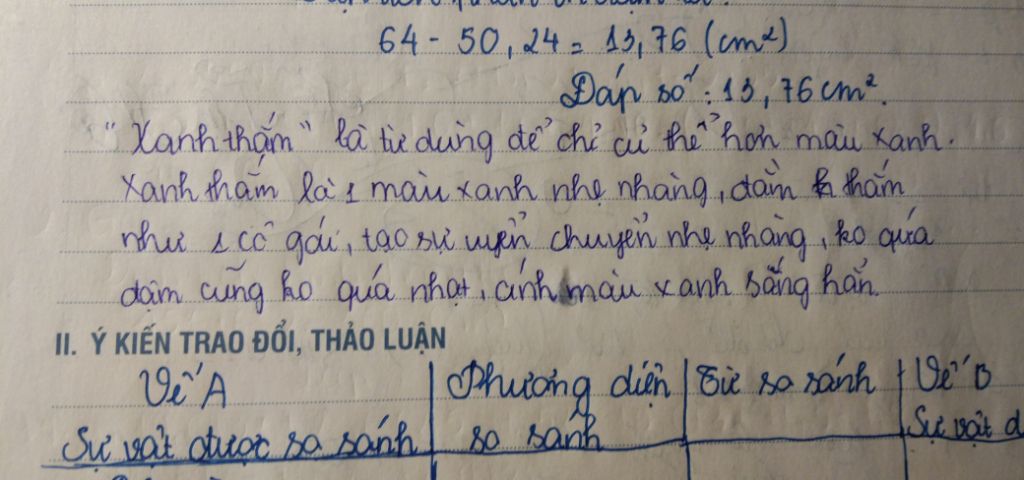 64 - 50,24 = 13,76 (cm²)
Đáp số : 13,76 cm².
"Xanh thẳm" là từ dùng để chỉ cụ thể hơn màu xanh.
Xanh thẳm là 1 màu xanh nhẹ nhàng, đằm thắm
như 1 cô gái, tạo sự uyển chuyển nhẹ nhàng, ko quá
đậm cũng ko quá nhạt, ánh màu xanh sẵng hẳn.
II. Ý KIẾN TRAO ĐỔI, THẢO LUẬN
Vế A | Phương diện | Từ so sánh | Vế B
Sự vật được so sánh | so sánh | Sự vật d